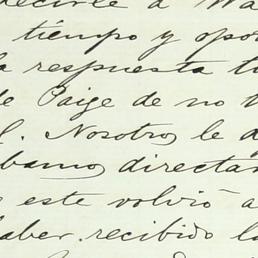 decirle a Wa
tiempo y opor
la respuesta t
de Paige de no
. Nosotros le d
bamos directa
este volvió á
aber recibido l